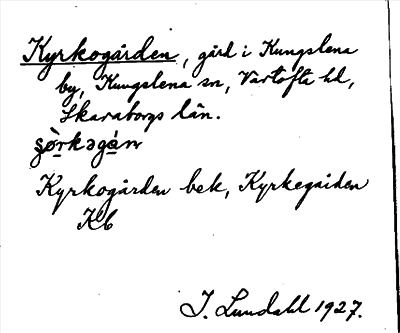 Kyrkogården, gård i Kungslena
by, Kungslena sn, Vartofta hd,
Skaraborgs län.
Kyrkogården bek, Kyrkegaiden
Kb
I. Lundahl 1927.